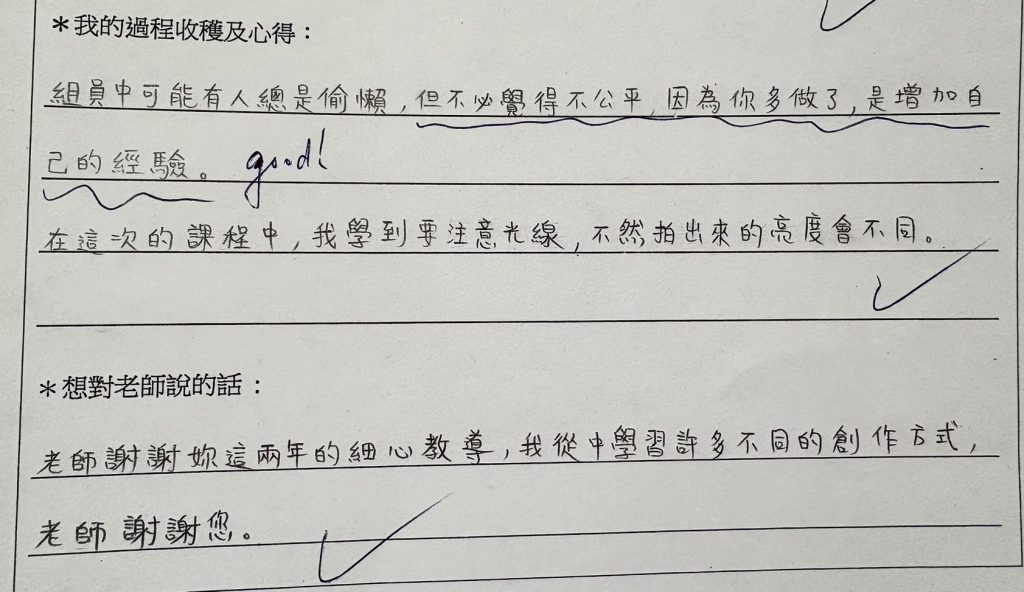 ＊我的過程收穫及心得：
組員中可能有人總是偷懶，但不必覺得不公平，因為你多做了，是增加自
己的經驗。 good!
在這次的課程中，我學到要注意光線，不然拍出來的亮度會不同。
＊想對老師說的話：
老師謝謝妳這兩年的細心教導，我從中學習許多不同的創作方式，
老師謝謝您。